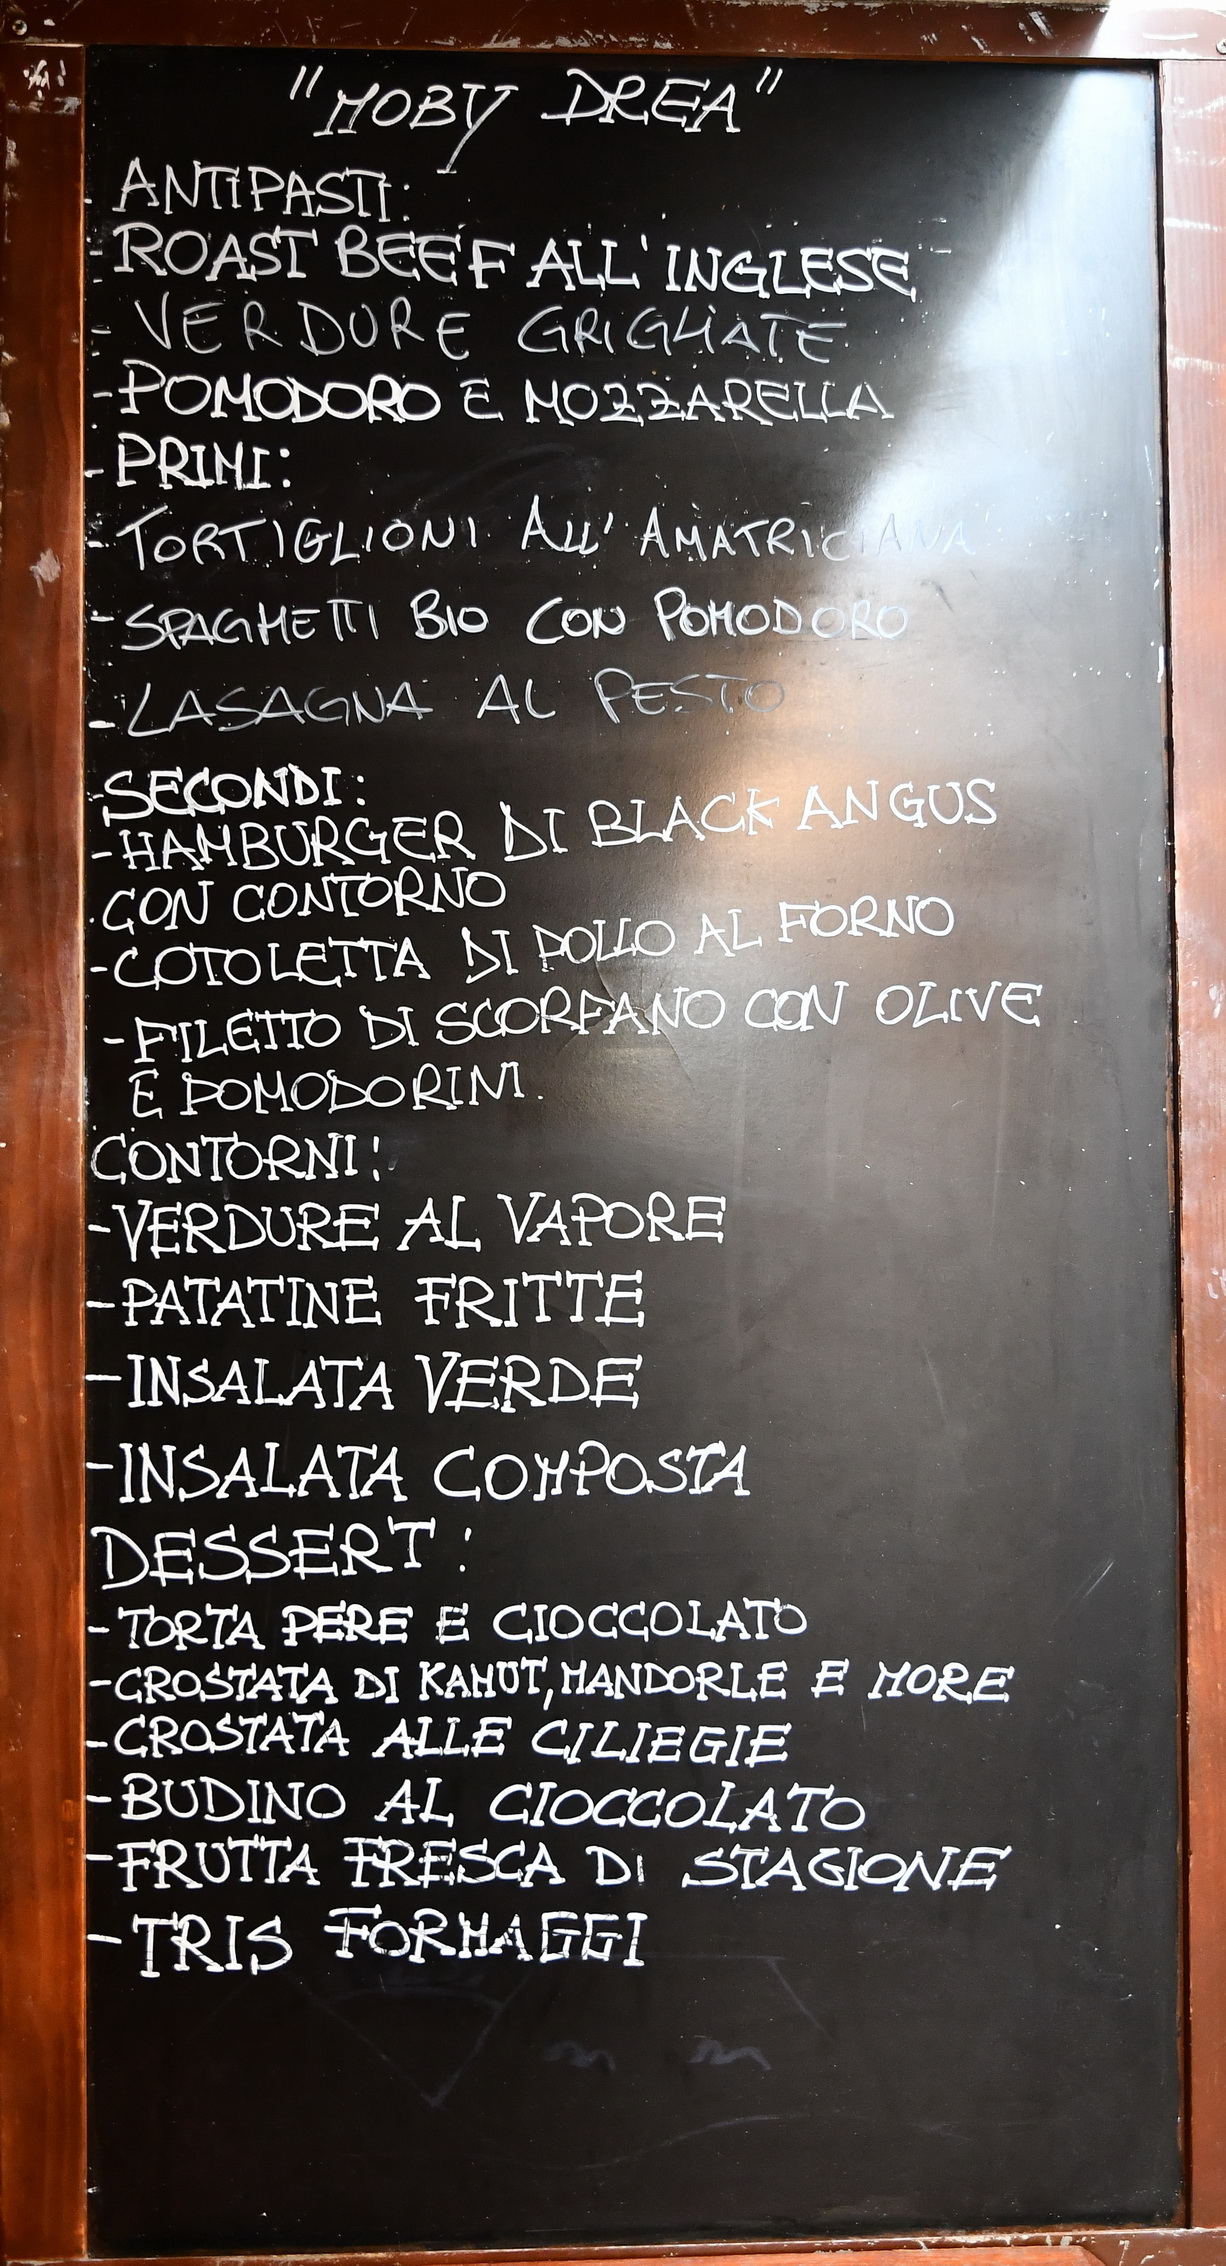 "MOBY DREA"
- ANTIPASTI:
- ROAST BEEF ALL'INGLESE
- VERDURE GRIGLIATE
- POMODORO E MOZZARELLA
- PRIMI:
- TORTIGLIONI ALL' AMATRICIANA
- SPAGHETTI BIO CON POMODORO
- LASAGNA AL PESTO
- SECONDI:
- HAMBURGER DI BLACK ANGUS
CON CONTORNO
- COTOLETTA DI POLLO AL FORNO
- FILETTO DI SCORFANO CON OLIVE
E POMODORINI.
CONTORNI:
- VERDURE AL VAPORE
- PATATINE FRITTE
- INSALATA VERDE
- INSALATA COMPOSTA
DESSERT:
- TORTA PERE E CIOCCOLATO
- CROSTATA DI KAMUT, MANDORLE E MORE
- CROSTATA ALLE CILIEGIE
- BUDINO AL CIOCCOLATO
- FRUTTA FRESCA DI STAGIONE
- TRIS FORMAGGI